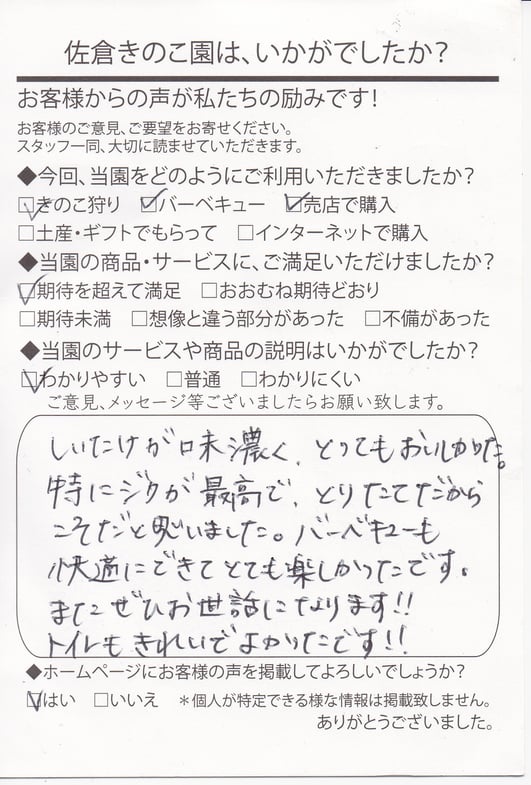 佐倉きのこ園は、いかがでしたか?
お客様からの声が私たちの励みです!
お客様のご意見、ご要望をお寄せください。
スタッフ一同、大切に読ませていただきます。
◆今回、当園をどのようにご利用いただきましたか?
☑きのこ狩り ☑バーベキュー ☑売店で購入
□土産・ギフトでもらって □インターネットで購入
◆当園の商品・サービスに、ご満足いただけましたか?
☑期待を超えて満足 □おおむね期待どおり
□期待未満 □想像と違う部分があった □不備があった
◆当園のサービスや商品の説明はいかがでしたか?
☑わかりやすい □普通 □わかりにくい
ご意見、メッセージ等ございましたらお願い致します。
しいたけが味濃く、とってもおいしかった。
特にジクが最高で、とりたてだから
こそだと思いました。バーベキューも
快適にできてとても楽しかったです。
またぜひお世話になります!!
トイレもきれいでよかったです!!
◆ホームページにお客様の声を掲載してよろしいでしょうか?
☑はい □いいえ *個人が特定できる様な情報は掲載致しません。
ありがとうございました。